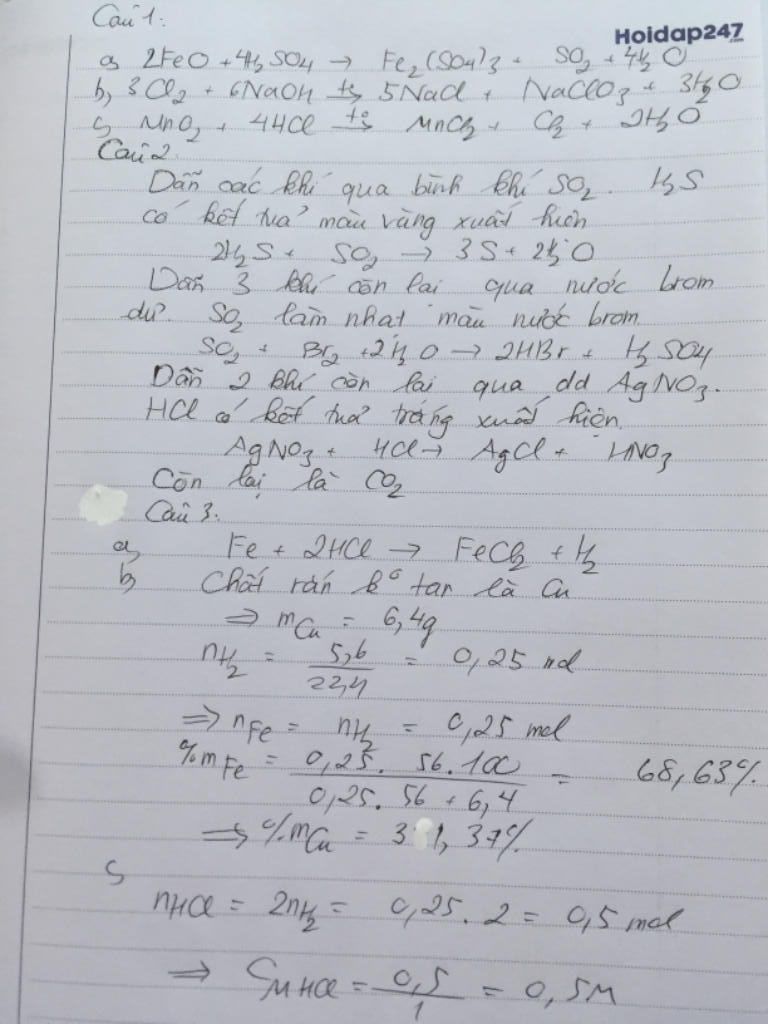 Câu 1:
Hoidap247
.com
a, 2FeO + 4H2SO4 → Fe2(SO4)3 + SO2 + 4H2O
b, 3Cl2 + 6NaOH t°→ 5NaCl + NaClO3 + 3H2O
c, MnO2 + 4HCl t°→ MnCl2 + Cl2 + 2H2O
Câu 2.
Dẫn các khí qua bình khí SO2. H2S
có kết tủa màu vàng xuất hiện
2H2S + SO2 → 3S + 2H2O
Dẫn 3 khí còn lại qua nước brom
dư. SO2 làm nhạt màu nước brom.
SO2 + Br2 + 2H2O → 2HBr + H2SO4
Dẫn 2 khí còn lại qua dd AgNO3.
HCl có kết tủa trắng xuất hiện.
AgNO3 + HCl → AgCl + HNO3
Còn lại là CO2
Câu 3.
a, Fe + 2HCl → FeCl2 + H2
b, Chất rắn kô tan là Cu
⇒ mCu = 6,4g
nH2 = 5,6/22,4 = 0,25 mol
⇒ nFe = nH2 = 0,25 mol
%mFe = 0,25. 56. 100 / 0,25. 56 + 6,4 = 68,63%.
⇒ %mCu = 31,37%
c,
nHCl = 2nH2 = 0,25. 2 = 0,5 mol
⇒ CM HCl = 0,5/1 = 0,5M